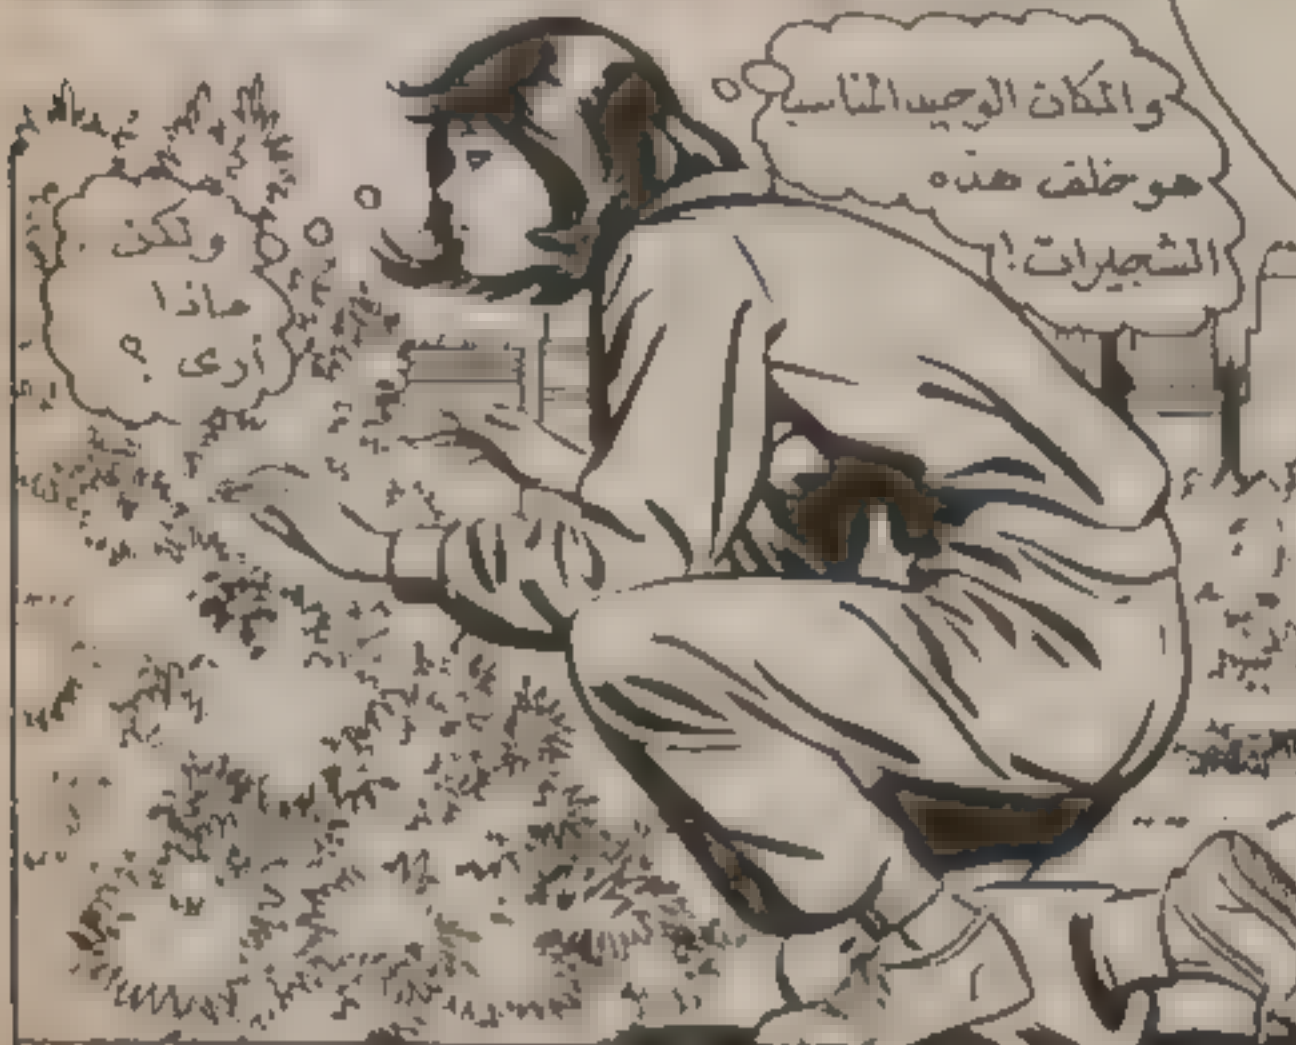 والمكان الوحيد المناسب
هو خلف هذه
الشجيرات!
ولكن
ماذا
أرى؟